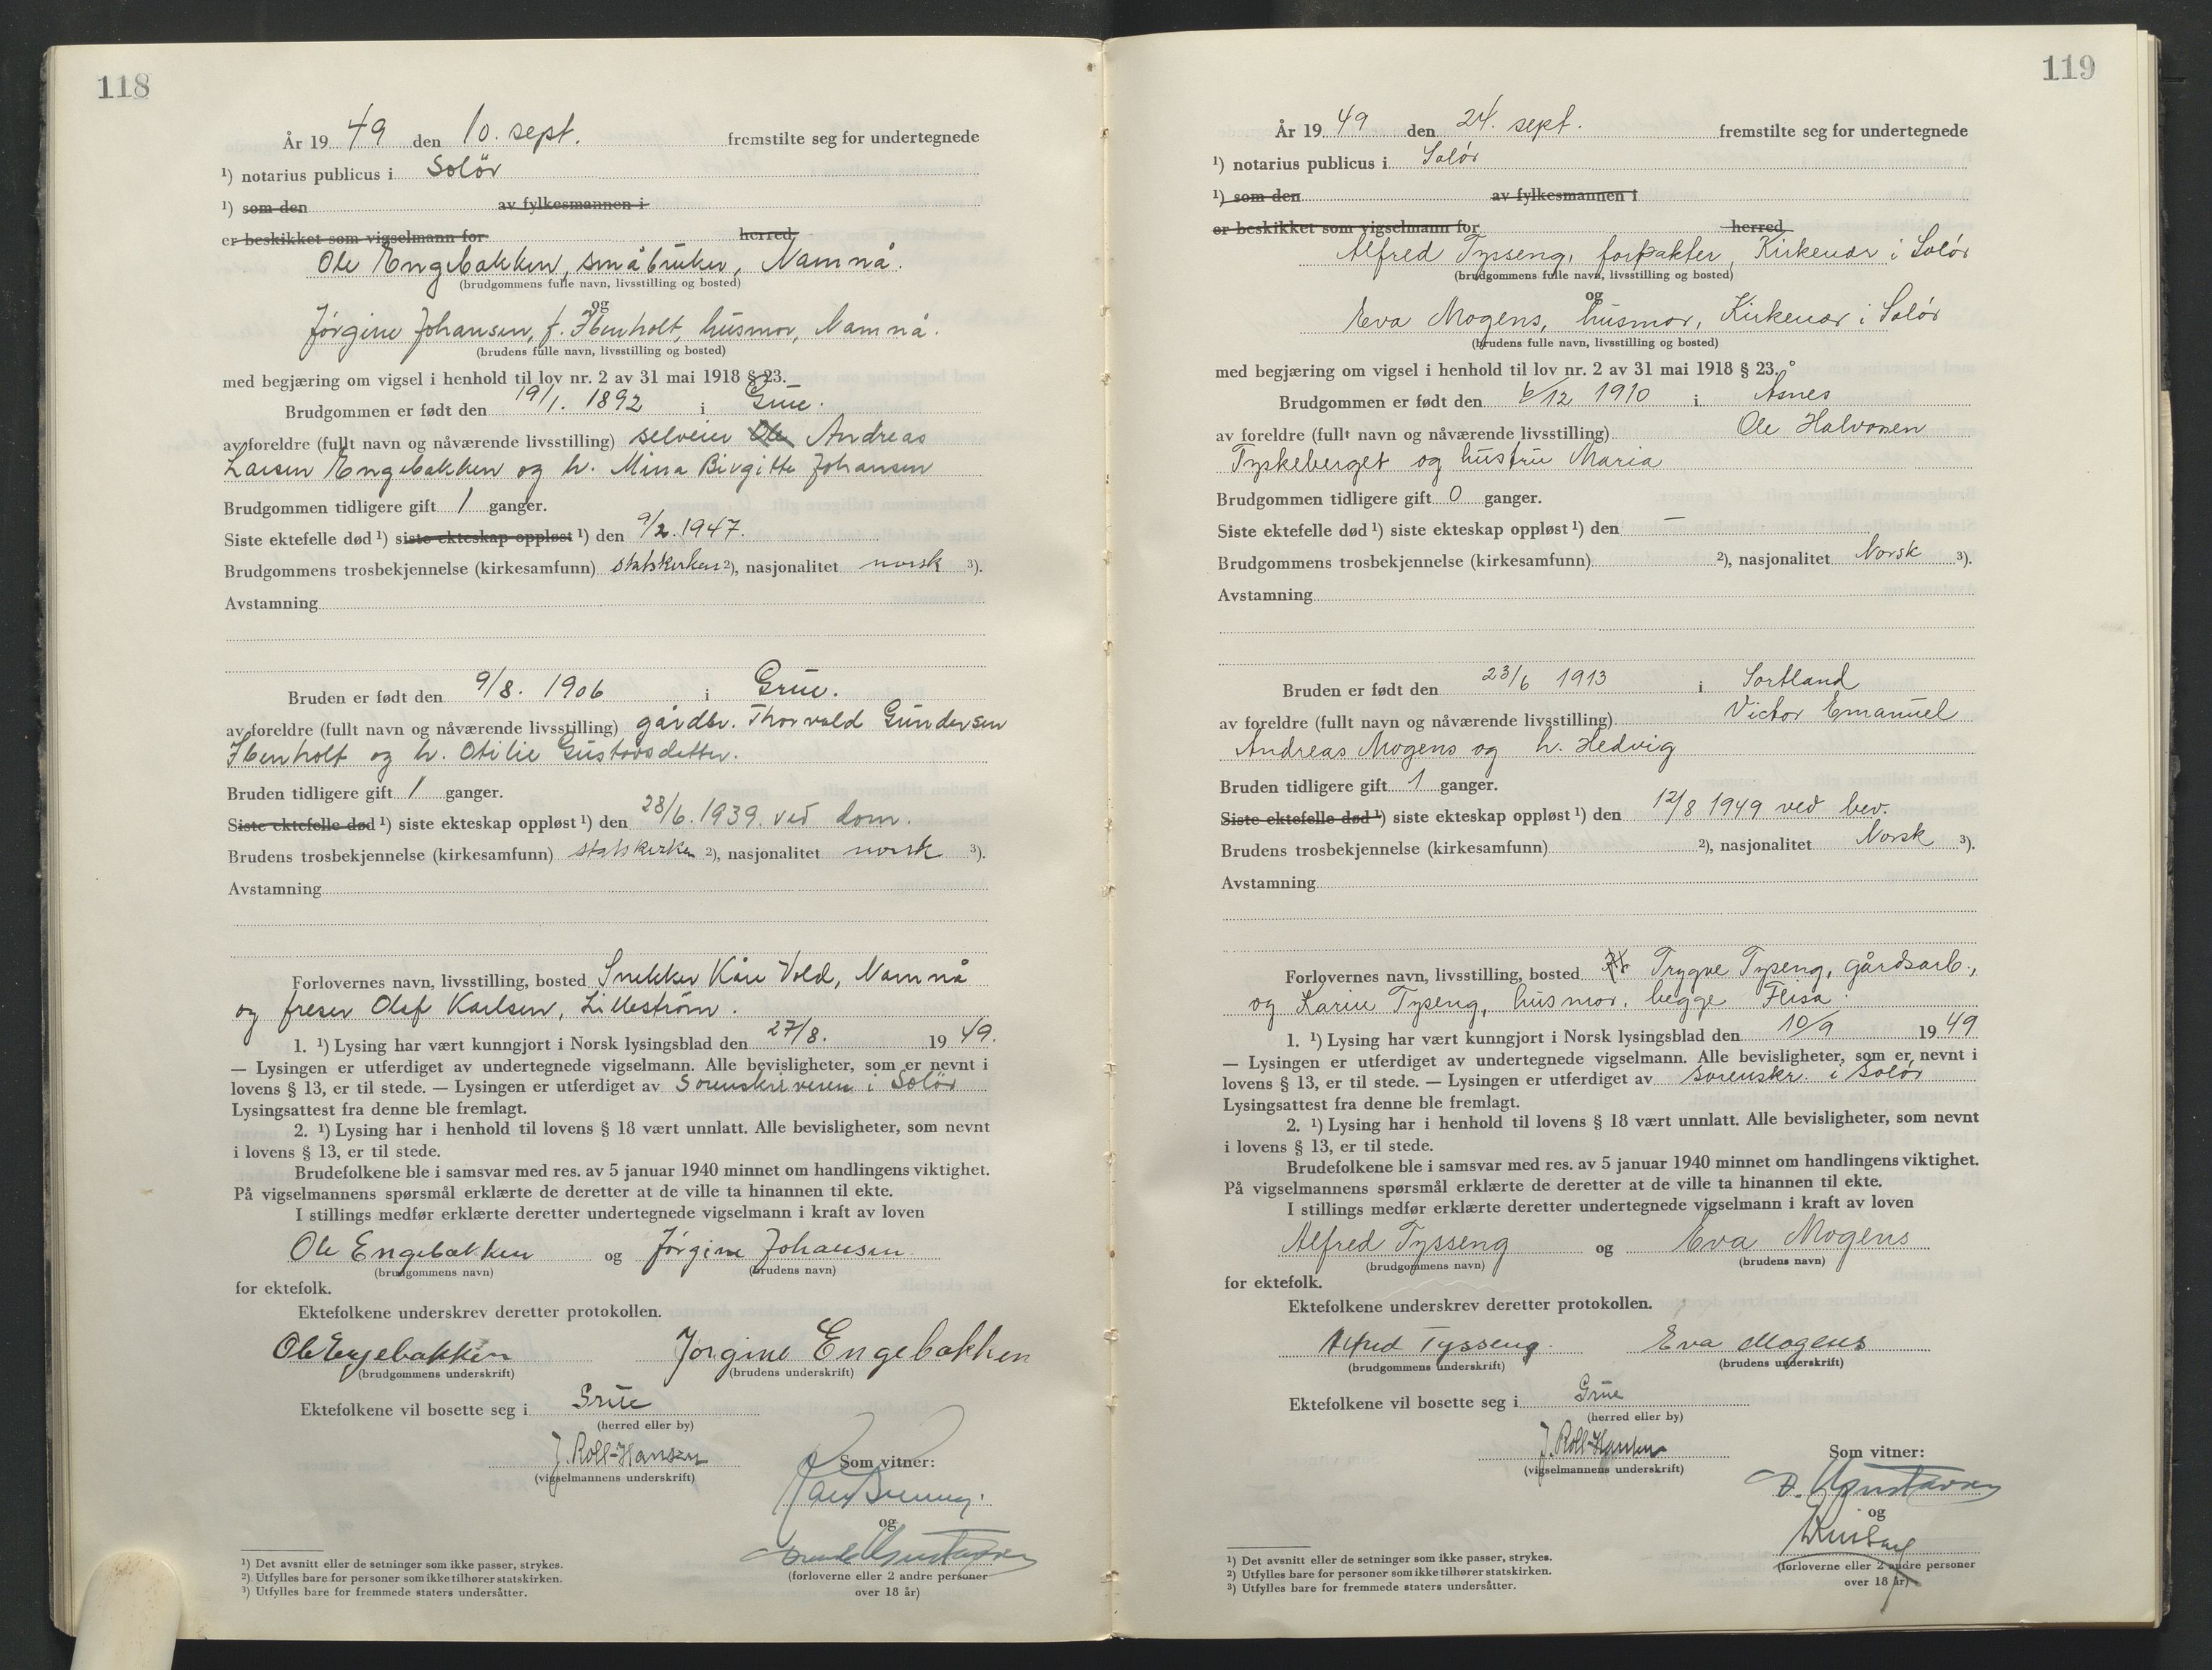 118
År 19 49 den 10. sept. fremstilte seg for undertegnede
¹) notarius publicus i Solör
¹) som den av fylkesmannen i
er beskikket som vigselmann for herred,
Ole Engebakken, småbruker, Namnå.
(brudgommens fulle navn, livsstilling og bosted)
og
Jørgine Johansen, f. Ibenholt, husmor, Namnå.
(brudens fulle navn, livsstilling og bosted)
med begjæring om vigsel i henhold til lov nr. 2 av 31 mai 1918 § 23.
Brudgommen er født den 19/1. 1892 i Grue.
av foreldre (fullt navn og nåværende livsstilling) selveier Ole Andreas
Larsen Engebakken og h. Mina Birgitte Johansen
Brudgommen tidligere gift 1 ganger.
Siste ektefelle død ¹) siste ekteskap oppløst ¹) den 9/2. 1947.
Brudgommens trosbekjennelse (kirkesamfunn) statskirken ²), nasjonalitet norsk ³).
Avstamning
Bruden er født den 9/8. 1906 i Grue.
av foreldre (fullt navn og nåværende livsstilling) gårdbr. Thorvald Gundersen
Ibenholt og h. Otilie Gustavsdatter.
Bruden tidligere gift 1 ganger.
Siste ektefelle død ¹) siste ekteskap oppløst ¹) den 28/6. 1939. ved dom.
Brudens trosbekjennelse (kirkesamfunn) statskirken ²), nasjonalitet norsk ³).
Avstamning
Forlovernes navn, livsstilling, bosted Snekker Kåre Vold, Namnå
og freser Olaf Karlsen, Lillestrøm.
1. ¹) Lysing har vært kunngjort i Norsk lysingsblad den 27/8. 19 49.
— Lysingen er utferdiget av undertegnede vigselmann. Alle bevisligheter, som er nevnt i
lovens § 13, er til stede. — Lysingen er utferdiget av Sorenskriveren i Solör
Lysingsattest fra denne ble fremlagt.
2. ¹) Lysing har i henhold til lovens § 18 vært unnlatt. Alle bevisligheter, som nevnt
i lovens § 13, er til stede.
Brudefolkene ble i samsvar med res. av 5 januar 1940 minnet om handlingens viktighet.
På vigselmannens spørsmål erklærte de deretter at de ville ta hinannen til ekte.
I stillings medfør erklærte deretter undertegnede vigselmann i kraft av loven
Ole Engebakken og Jørgine Johansen
(brudgommens navn) (brudens navn)
for ektefolk.
Ektefolkene underskrev deretter protokollen.
Ole Engebakken Jørgine Engebakken
(brudgommens underskrift) (brudens underskrift)
Ektefolkene vil bosette seg i Grue
(herred eller by)
J. Roll-Hansen
(vigselmannens underskrift)
Som vitner:
og
(forloverne eller 2 andre personer
over 18 år)
¹) Det avsnitt eller de setninger som ikke passer, strykes.
²) Utfylles bare for personer som ikke tilhører statskirken.
³) Utfylles bare for fremmede staters undersåtter.
119
År 19 49 den 24. sept. fremstilte seg for undertegnede
¹) notarius publicus i Solór
¹) som den av fylkesmannen i
er beskikket som vigselmann for herred,
Alfred Tysseng, forpakter, Kirkenær i Solór
(brudgommens fulle navn, livsstilling og bosted)
og
Eva Mogens, husmor, Kirkenær i Solór
(brudens fulle navn, livsstilling og bosted)
med begjæring om vigsel i henhold til lov nr. 2 av 31 mai 1918 § 23.
Brudgommen er født den 6/12 1910 i Åsnes
av foreldre (fullt navn og nåværende livsstilling) Ole Halvorsen
Tyskeberget og hustru Maria
Brudgommen tidligere gift 0 ganger.
Siste ektefelle død ¹) siste ekteskap oppløst ¹) den —
Brudgommens trosbekjennelse (kirkesamfunn) ²), nasjonalitet Norsk ³).
Avstamning
Bruden er født den 23/6 1913 i Sortland
av foreldre (fullt navn og nåværende livsstilling) Victor Emanuel
Andreas Mogens og h. Hedvig
Bruden tidligere gift 1 ganger.
Siste ektefelle død ¹) siste ekteskap oppløst ¹) den 12/8 1949 ved bev.
Brudens trosbekjennelse (kirkesamfunn) ²), nasjonalitet Norsk ³).
Avstamning
Forlovernes navn, livsstilling, bosted Trygve Tyseng, gårdsarb.,
og Karin Tyseng, husmor, begge Flisa.
1. ¹) Lysing har vært kunngjort i Norsk lysingsblad den 10/9 19 49
— Lysingen er utferdiget av undertegnede vigselmann. Alle bevisligheter, som er nevnt i
lovens § 13, er til stede. — Lysingen er utferdiget av sorenskr. i Solór
Lysingsattest fra denne ble fremlagt.
2. ¹) Lysing har i henhold til lovens § 18 vært unnlatt. Alle bevisligheter, som nevnt
i lovens § 13, er til stede.
Brudefolkene ble i samsvar med res. av 5 januar 1940 minnet om handlingens viktighet.
På vigselmannens spørsmål erklærte de deretter at de ville ta hinannen til ekte.
I stillings medfør erklærte deretter undertegnede vigselmann i kraft av loven
Alfred Tysseng og Eva Mogens
(brudgommens navn) (brudens navn)
for ektefolk.
Ektefolkene underskrev deretter protokollen.
Alfred Tysseng Eva Mogens
(brudgommens underskrift) (brudens underskrift)
Ektefolkene vil bosette seg i Grue
(herred eller by)
J. Roll-Hansen
(vigselmannens underskrift)
Som vitner:
og
(forloverne eller 2 andre personer
over 18 år)
¹) Det avsnitt eller de setninger som ikke passer, strykes.
²) Utfylles bare for personer som ikke tilhører statskirken.
³) Utfylles bare for fremmede staters undersåtter.